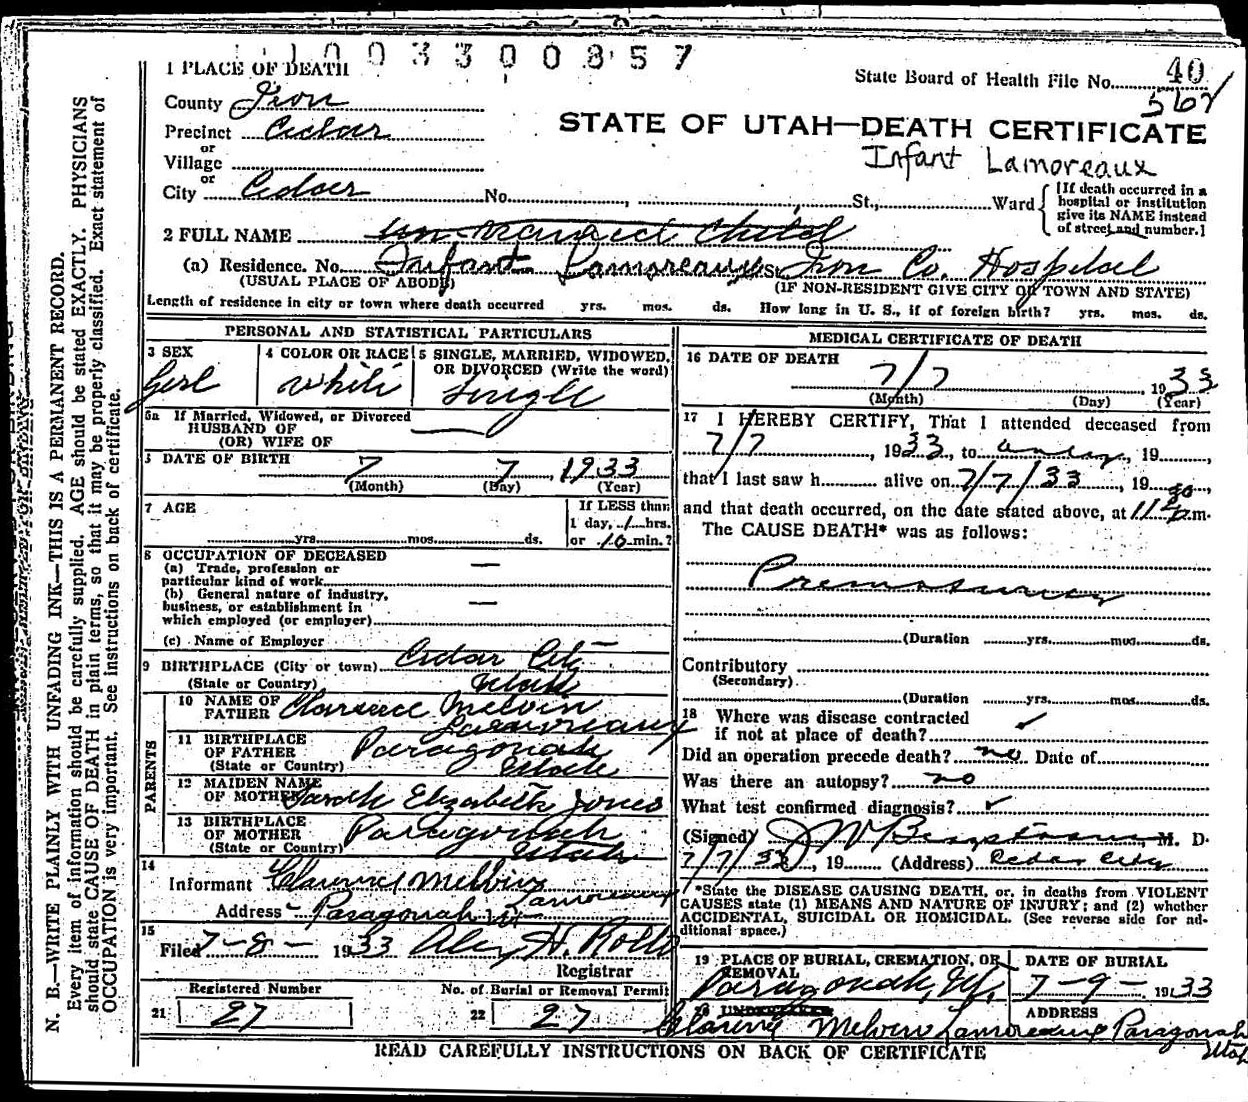 1 0 0 3 3 0 0 8 5 7
1 PLACE OF DEATH
State Board of Health File No. 40
County Iron
562
Precinct Cedar
STATE OF UTAH—DEATH CERTIFICATE
or
Village
Infant Lamoreaux
or
City Cedar No. , , St., Ward
[If death occurred in a hospital or institution give its NAME instead of street and number.]
2 FULL NAME un named Child
(a) Residence. No. Infant Lamoreaux St. Iron Co. Hospital
(USUAL PLACE OF ABODE) (IF NON-RESIDENT GIVE CITY OR TOWN AND STATE)
Length of residence in city or town where death occurred yrs. mos. ds. How long in U. S., if of foreign birth? yrs. mos. ds.
PERSONAL AND STATISTICAL PARTICULARS
3 SEX Girl
4 COLOR OR RACE White
5 SINGLE, MARRIED, WIDOWED, OR DIVORCED (Write the word) Single
5a If Married, Widowed, or Divorced
HUSBAND OF
(OR) WIFE OF
DATE OF BIRTH 7 7, 1933
(Month) (Day) (Year)
7 AGE
yrs. mos. ds.
If LESS than
1 day, 1 hrs.
or 10 min.?
8 OCCUPATION OF DECEASED
(a) Trade, profession or
particular kind of work
(b) General nature of industry,
business, or establishment in
which employed (or employer)
(c) Name of Employer
9 BIRTHPLACE (City or town) Cedar City
(State or Country) Utah
PARENTS
10 NAME OF FATHER Clarence Melvin Lamoreaux
11 BIRTHPLACE OF FATHER Paragonah
(State or Country) Utah
12 MAIDEN NAME OF MOTHER Sarah Elizabeth Jones
13 BIRTHPLACE OF MOTHER Paragonah
(State or Country) Utah
14
Informant Clarence Melvin Lamoreaux
Address Paragonah Ut
15
Filed 7-8- 1933 H.
Registrar
Registered Number
21 27
No. of Burial or Removal Permit
22 27
MEDICAL CERTIFICATE OF DEATH
16 DATE OF DEATH
7/7 1933
(Month) (Day) (Year)
17 I HEREBY CERTIFY, That I attended deceased from
7/7, 1933, to , 19 ,
that I last saw h alive on 7/7/33, 19 ,
and that death occurred, on the date stated above, at 11 30 m.
The CAUSE DEATH* was as follows:
Prematurity
(Duration yrs. mos. ds.
Contributory
(Secondary)
(Duration yrs. mos. ds.
18 Where was disease contracted
if not at place of death? ✓
Did an operation precede death? no Date of
Was there an autopsy? no
What test confirmed diagnosis? ✓
(Signed) J W , M. D.
7/7/33, 19 (Address) Cedar City
*State the DISEASE CAUSING DEATH, or, in deaths from VIOLENT
CAUSES state (1) MEANS AND NATURE OF INJURY; and (2) whether
ACCIDENTAL, SUICIDAL OR HOMICIDAL. (See reverse side for ad-
ditional space.)
19 PLACE OF BURIAL, CREMATION, OR REMOVAL
Paragonah, Ut.
DATE OF BURIAL
7-9- 1933
20 UNDERTAKER ADDRESS
Clarence Melvin Lamoreaux Paragonah
Utah
READ CAREFULLY INSTRUCTIONS ON BACK OF CERTIFICATE
N. B.—WRITE PLAINLY WITH UNFADING INK—THIS IS A PERMANENT RECORD.
Every item of information should be carefully supplied. AGE should be stated EXACTLY. PHYSICIANS
should state CAUSE OF DEATH in plain terms, so that it may be properly classified. Exact statement of
OCCUPATION is very important. See instructions on back of certificate.